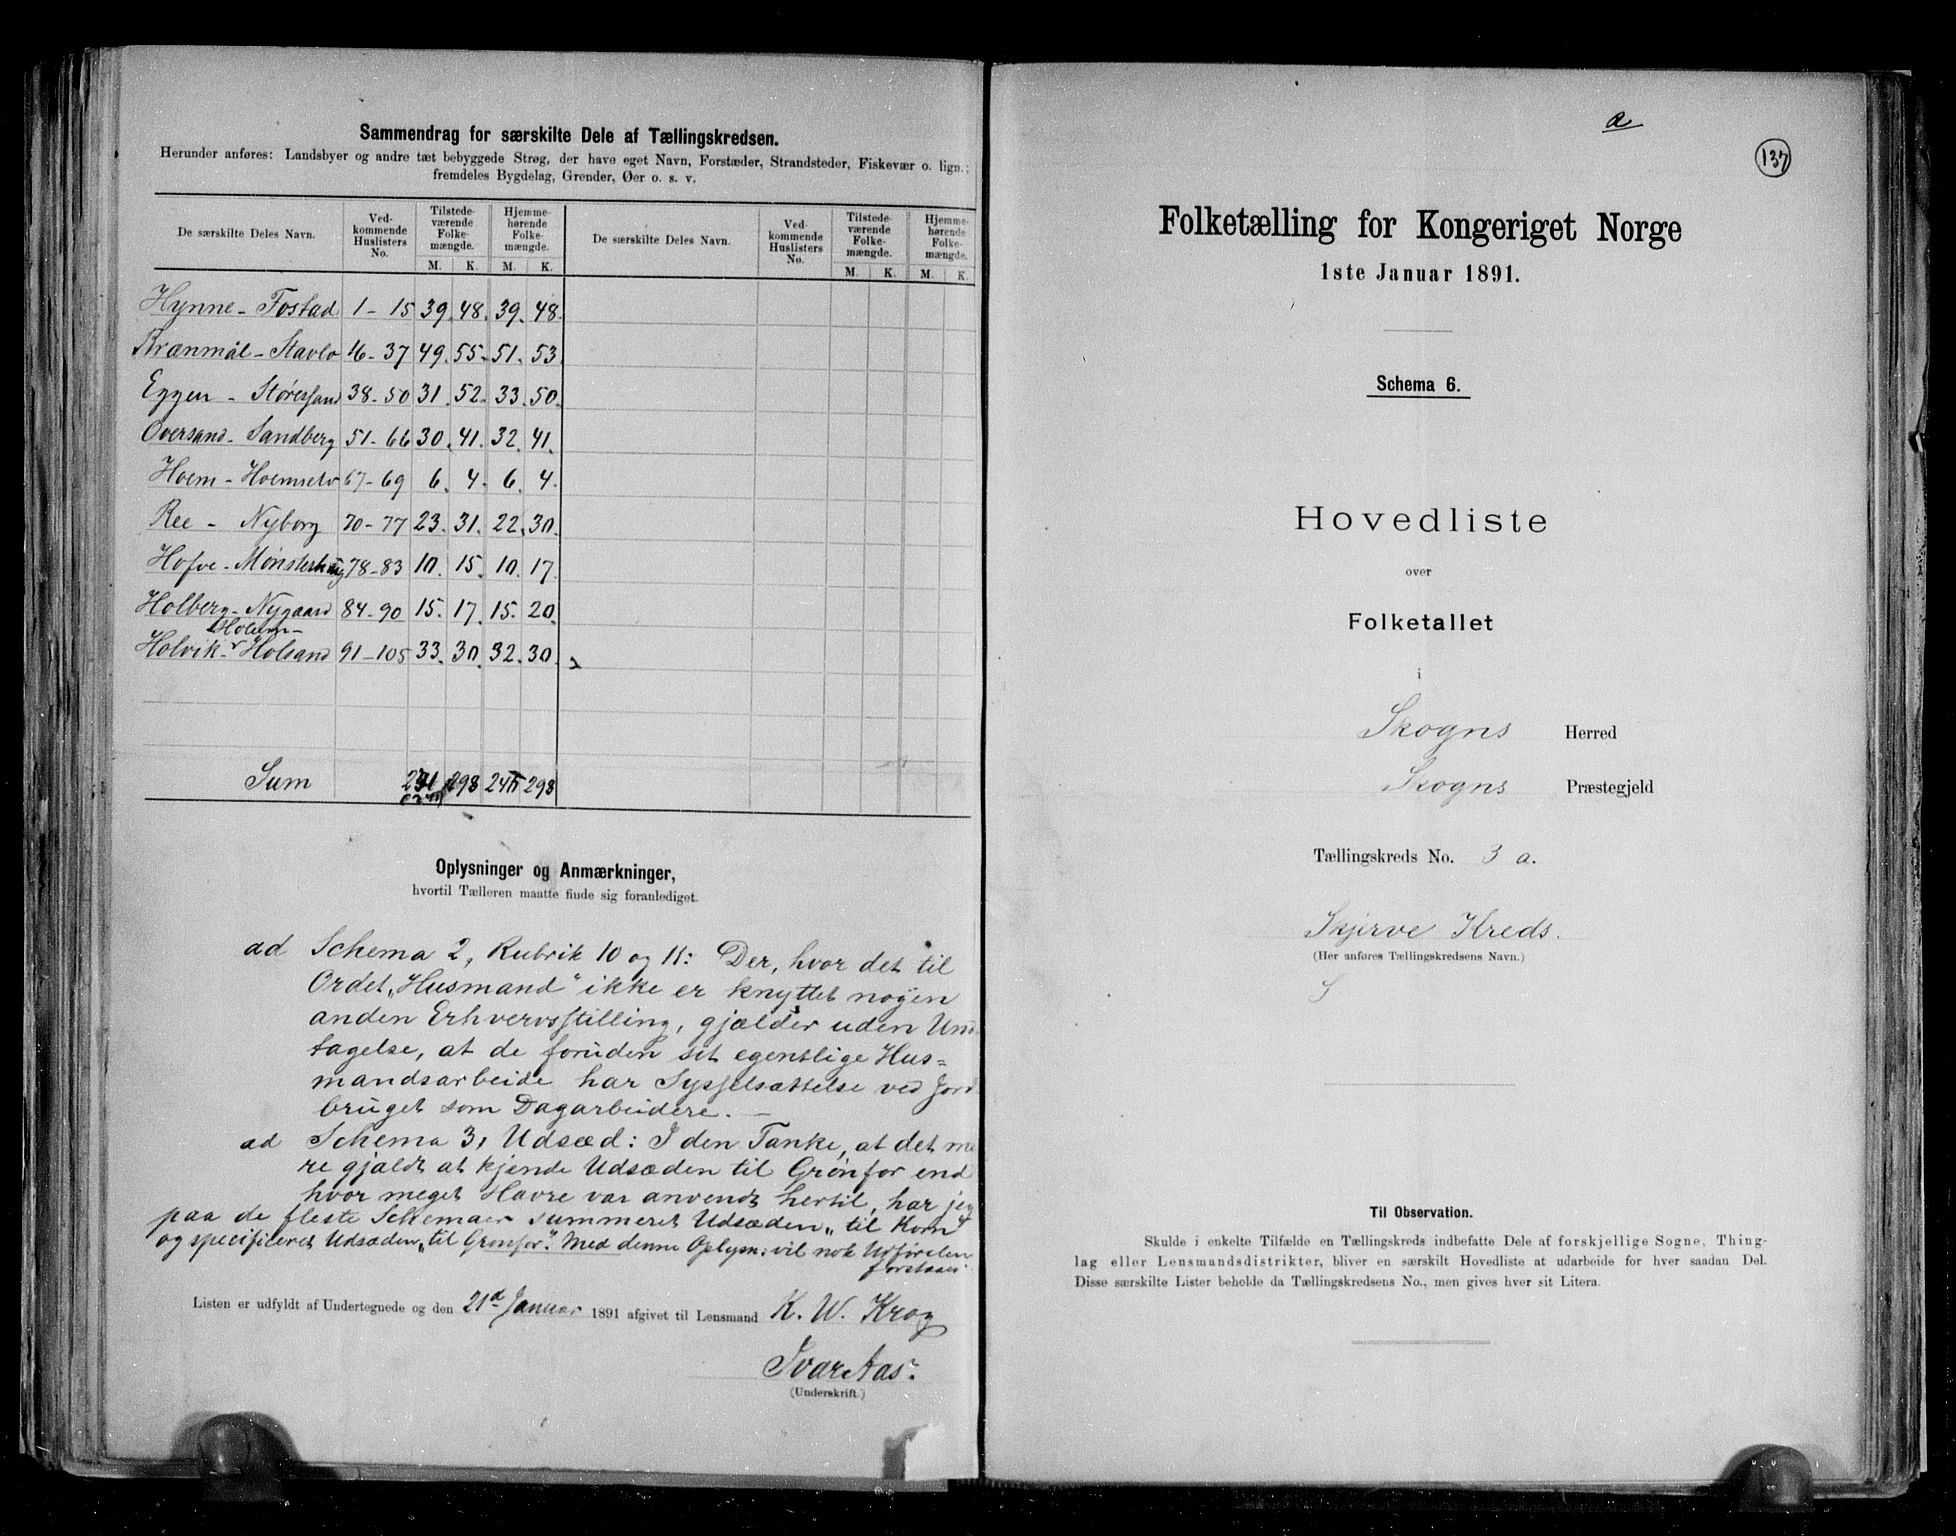 Sammendrag for særskilte Dele af Tællingskredsen.
Herunder anføres: Landsbyer og andre tæt bebyggede Strøg, der have eget Navn, Forstæder, Strandsteder, Fiskevær o. lign.;
fremdeles Bygdelag, Grender, Øer o. s. v.
De særskilte Deles Navn. Vedkommende Huslisters No. Tilstedeværende Folkemængde. M. K. Hjemmehørende Folkemængde. M. K. De særskilte Deles Navn. Vedkommende Huslisters No. Tilstedeværende Folkemængde. M. K. Hjemmehørende Folkemængde. M. K.
Hynne - Fostad 1 - 15 39. 48. 39. 48.
Brænmål - Stavlo 16 - 37 49. 55. 51. 53.
Eggen - Størersand 38 - 50 31. 52. 33. 50.
Oversand - Sandberg 51 - 66 30. 41. 32. 41.
Hoem - Hoemselv 67 - 69 6. 4. 6. 4.
Ree - Nyborg 70 - 77 23. 31. 22. 30.
Hofve - Mønsterhaug 78 - 83 10. 15. 10. 17.
Holberg - Nygaard 84 - 90 15. 17. 15. 20.
Holum -
Holvik - Holsand 91 - 105 33. 30. 32. 30.
Sum 298 298
Oplysninger og Anmærkninger,
hvortil Tælleren maatte finde sig foranlediget.
ad Schema 2, Rubrik 10 og 11: Der, hvor det til
Ordet „Husmand" ikke er knyttet nogen
anden Erhvervsstilling, gjælder uden Und
tagelse, at de foruden sit egentlige Hus=
mandsarbeide har Sysselsættelse ved Jord
bruget som Dagarbeidere. —
ad Schema 3, Udsæd: I den Tanke, at det me
re gjaldt at kjende Udsæden til Grønfor end
hvor meget Havre var anvendt hertil, har jeg
paa de fleste Schemaer summeret Udsæden „til Korn"
og specificeret Udsæden „til Grønfor". Med denne Oplysn. vil nok Udførelen
forstaaes.
Listen er udfyldt af Undertegnede og den 21d Januar 1891 afgivet til Lensmand K. W. Krog
Ivar Aas.
(Underskrift.)
a
137
Folketælling for Kongeriget Norge
1ste Januar 1891.
Schema 6.
Hovedliste
over
Folketallet
i
Skogns Herred
Skogns Præstegjeld
Tællingskreds No. 3 a.
Skjerve Kreds.
(Her anføres Tællingskredsens Navn.)
S
Til Observation.
Skulde i enkelte Tilfælde en Tællingskreds indbefatte Dele af forskjellige Sogne, Thing-
lag eller Lensmandsdistrikter, bliver en særskilt Hovedliste at udarbeide for hver saadan Del.
Disse særskilte Lister beholde da Tællingskredsens No., men gives hver sit Litera.